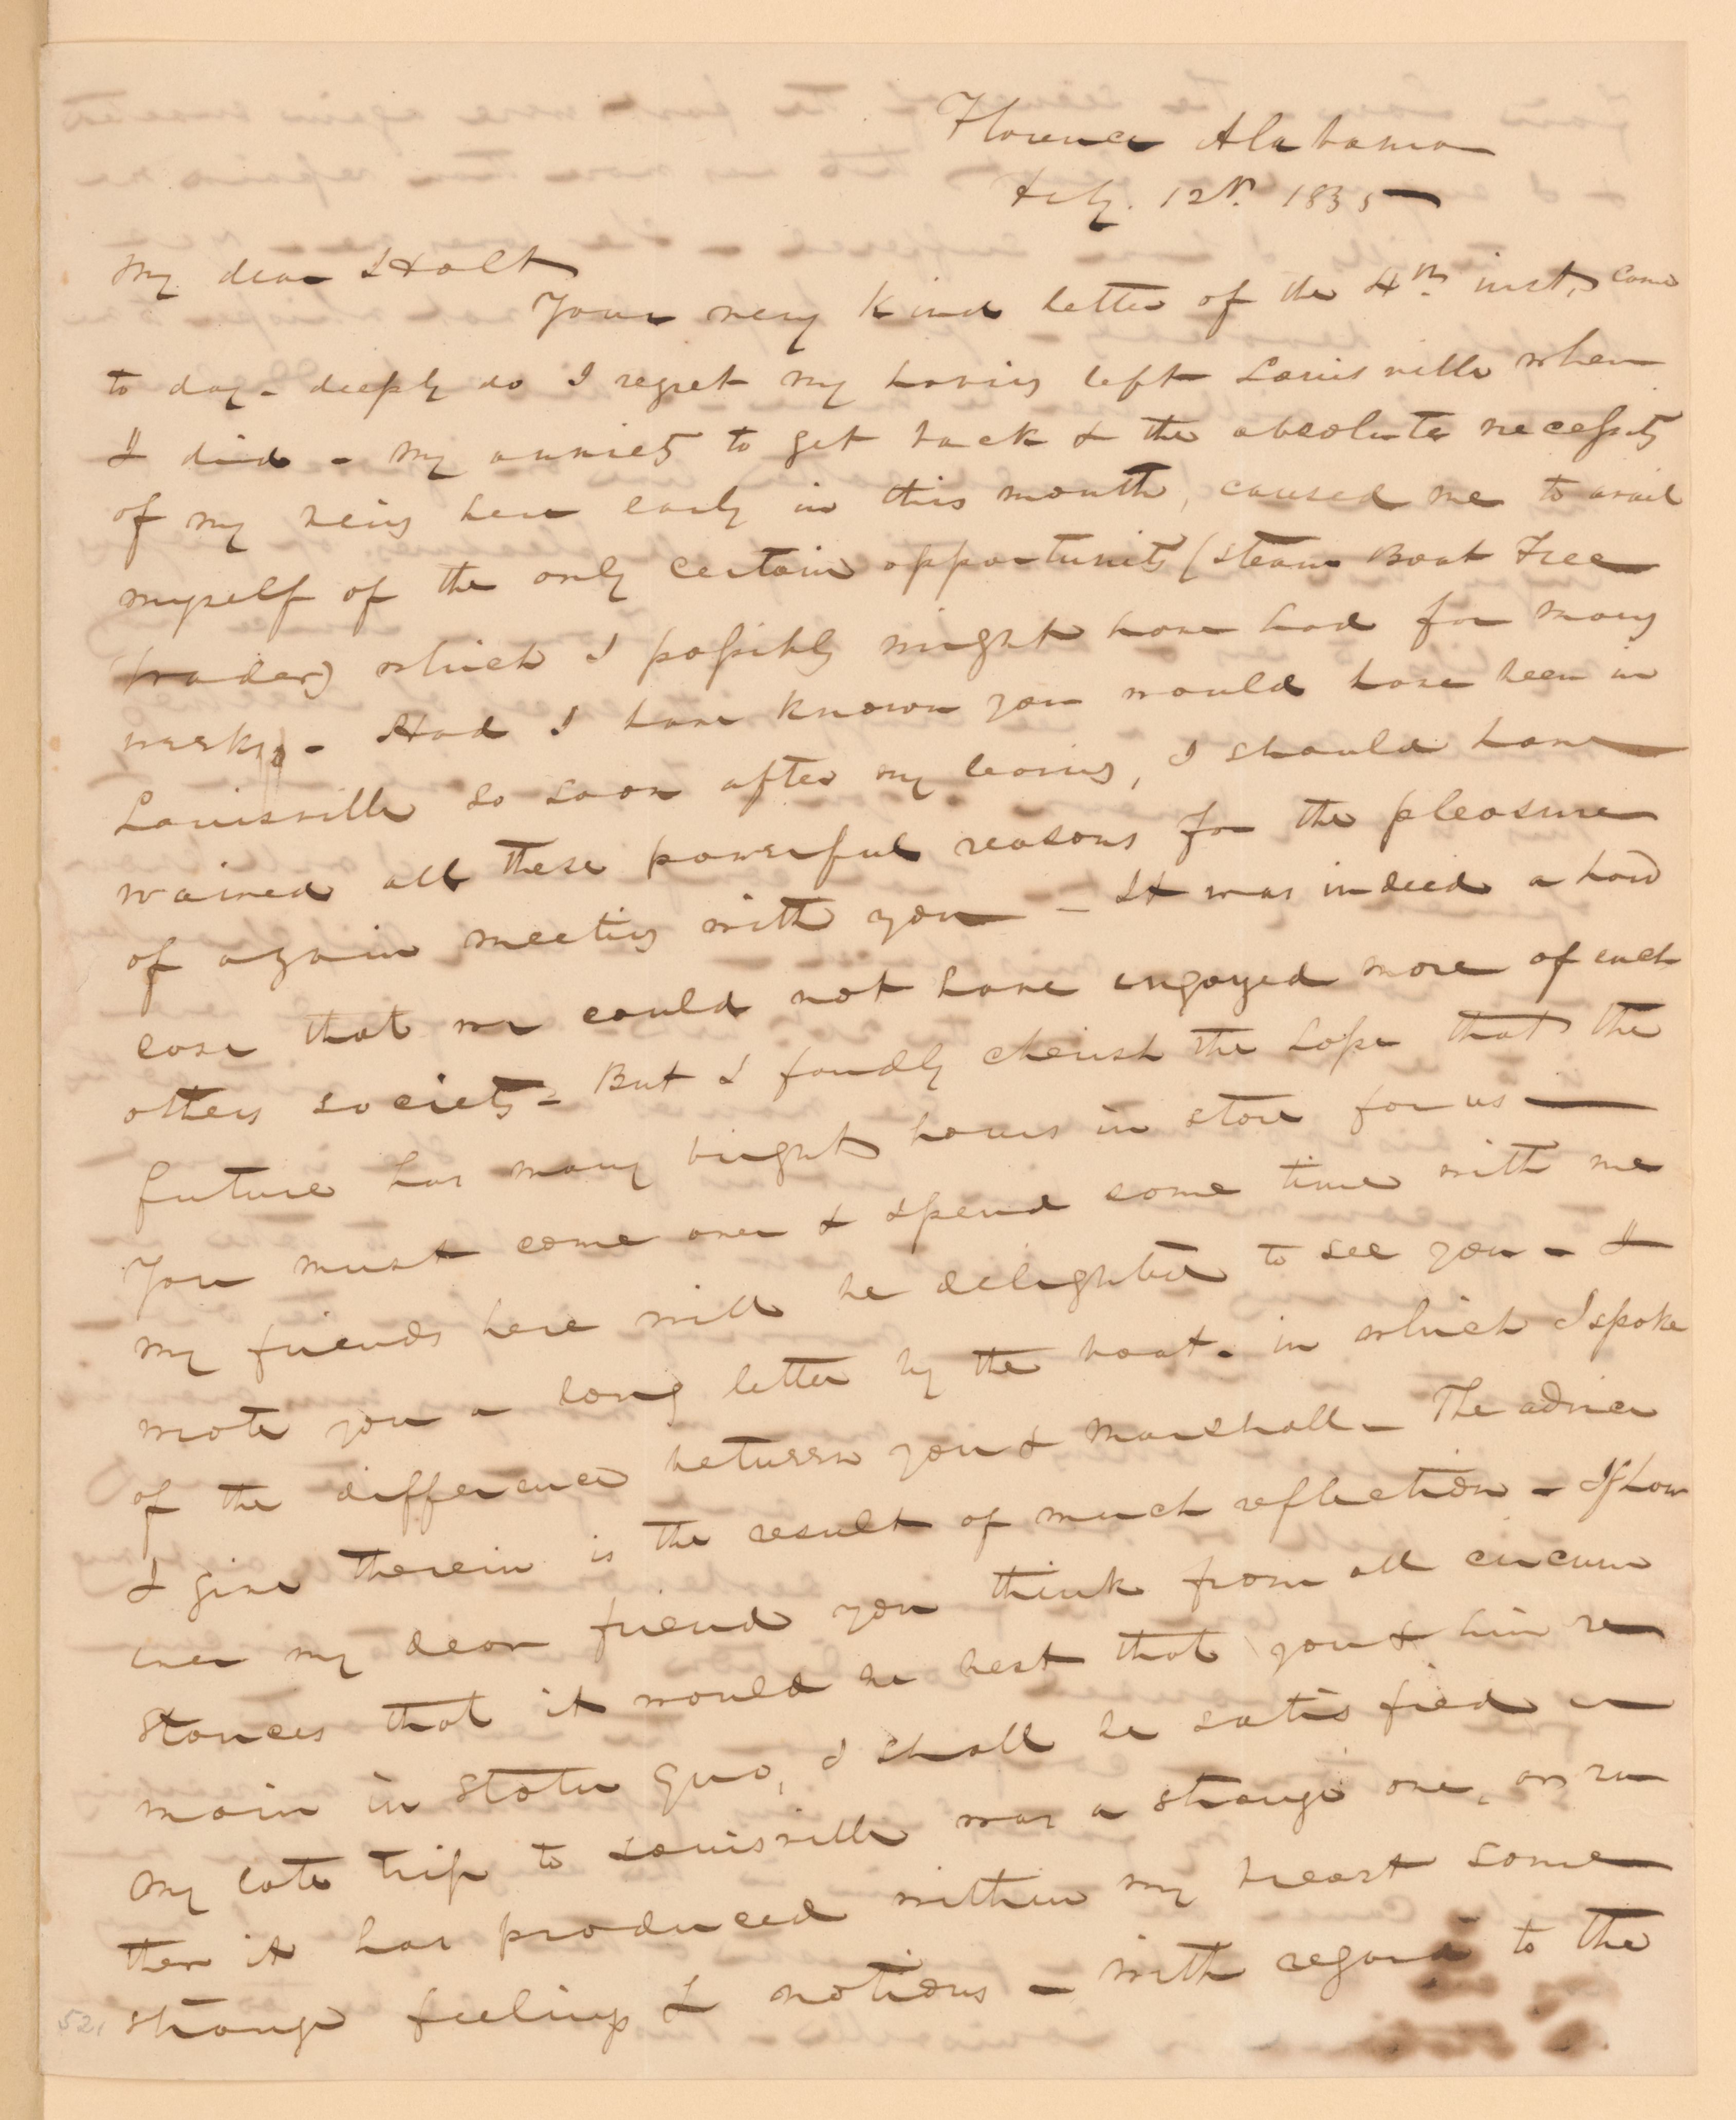 Florence Alabama
Feby. 12th. 1835
My dear Holt
Your very kind letter of the 4th inst, came
to day - deeply do I regret my having left Louisville when
I did - my anxiety to get back & the absolute necessity
of my being here early in this month, caused me to avail
myself of the only certain opportunity (Steam Boat Free
trader) which I possibly might have had for many
weeks - Had I have known you would have been in
Louisville so soon after my leaving, I should have
waived all these powerful reasons for the pleasure
of again meeting with you - It was indeed a hard
case that we could not have enjoyed more of each
others society - But I fondly cherish the hope that the
future has many bright hours in store for us —
You must come over & spend some time with me
my friends here will be delighted to see you - I
wrote you a long letter by the boat. in which I spoke
of the difference between you & Marshall - The advice
I give therein is the result of much reflection - If how
ever my dear friend you think from all circum
stances that it would be best that you & him re
main in statu quo, I shall be satisfied
My late trip to Louisville was a strange one, or ra
ther it has produced within my heart some
strange feelings & notions - with regard to the
521